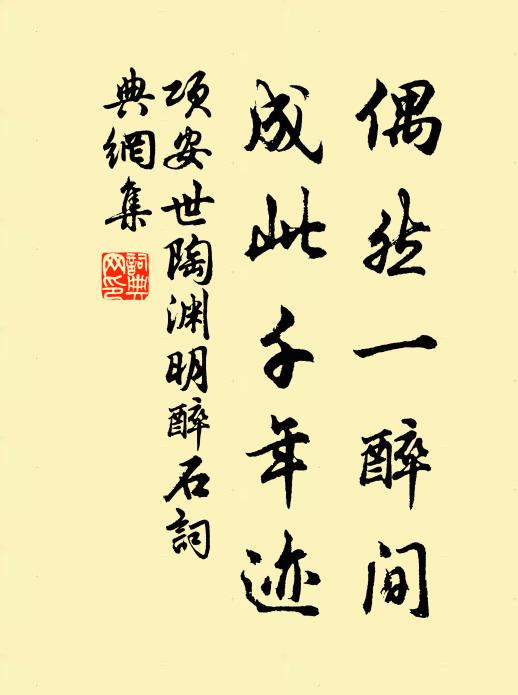 偶然一醉间
成此千年迹
项安世陶渊明醉石词
典網集
詞典网印